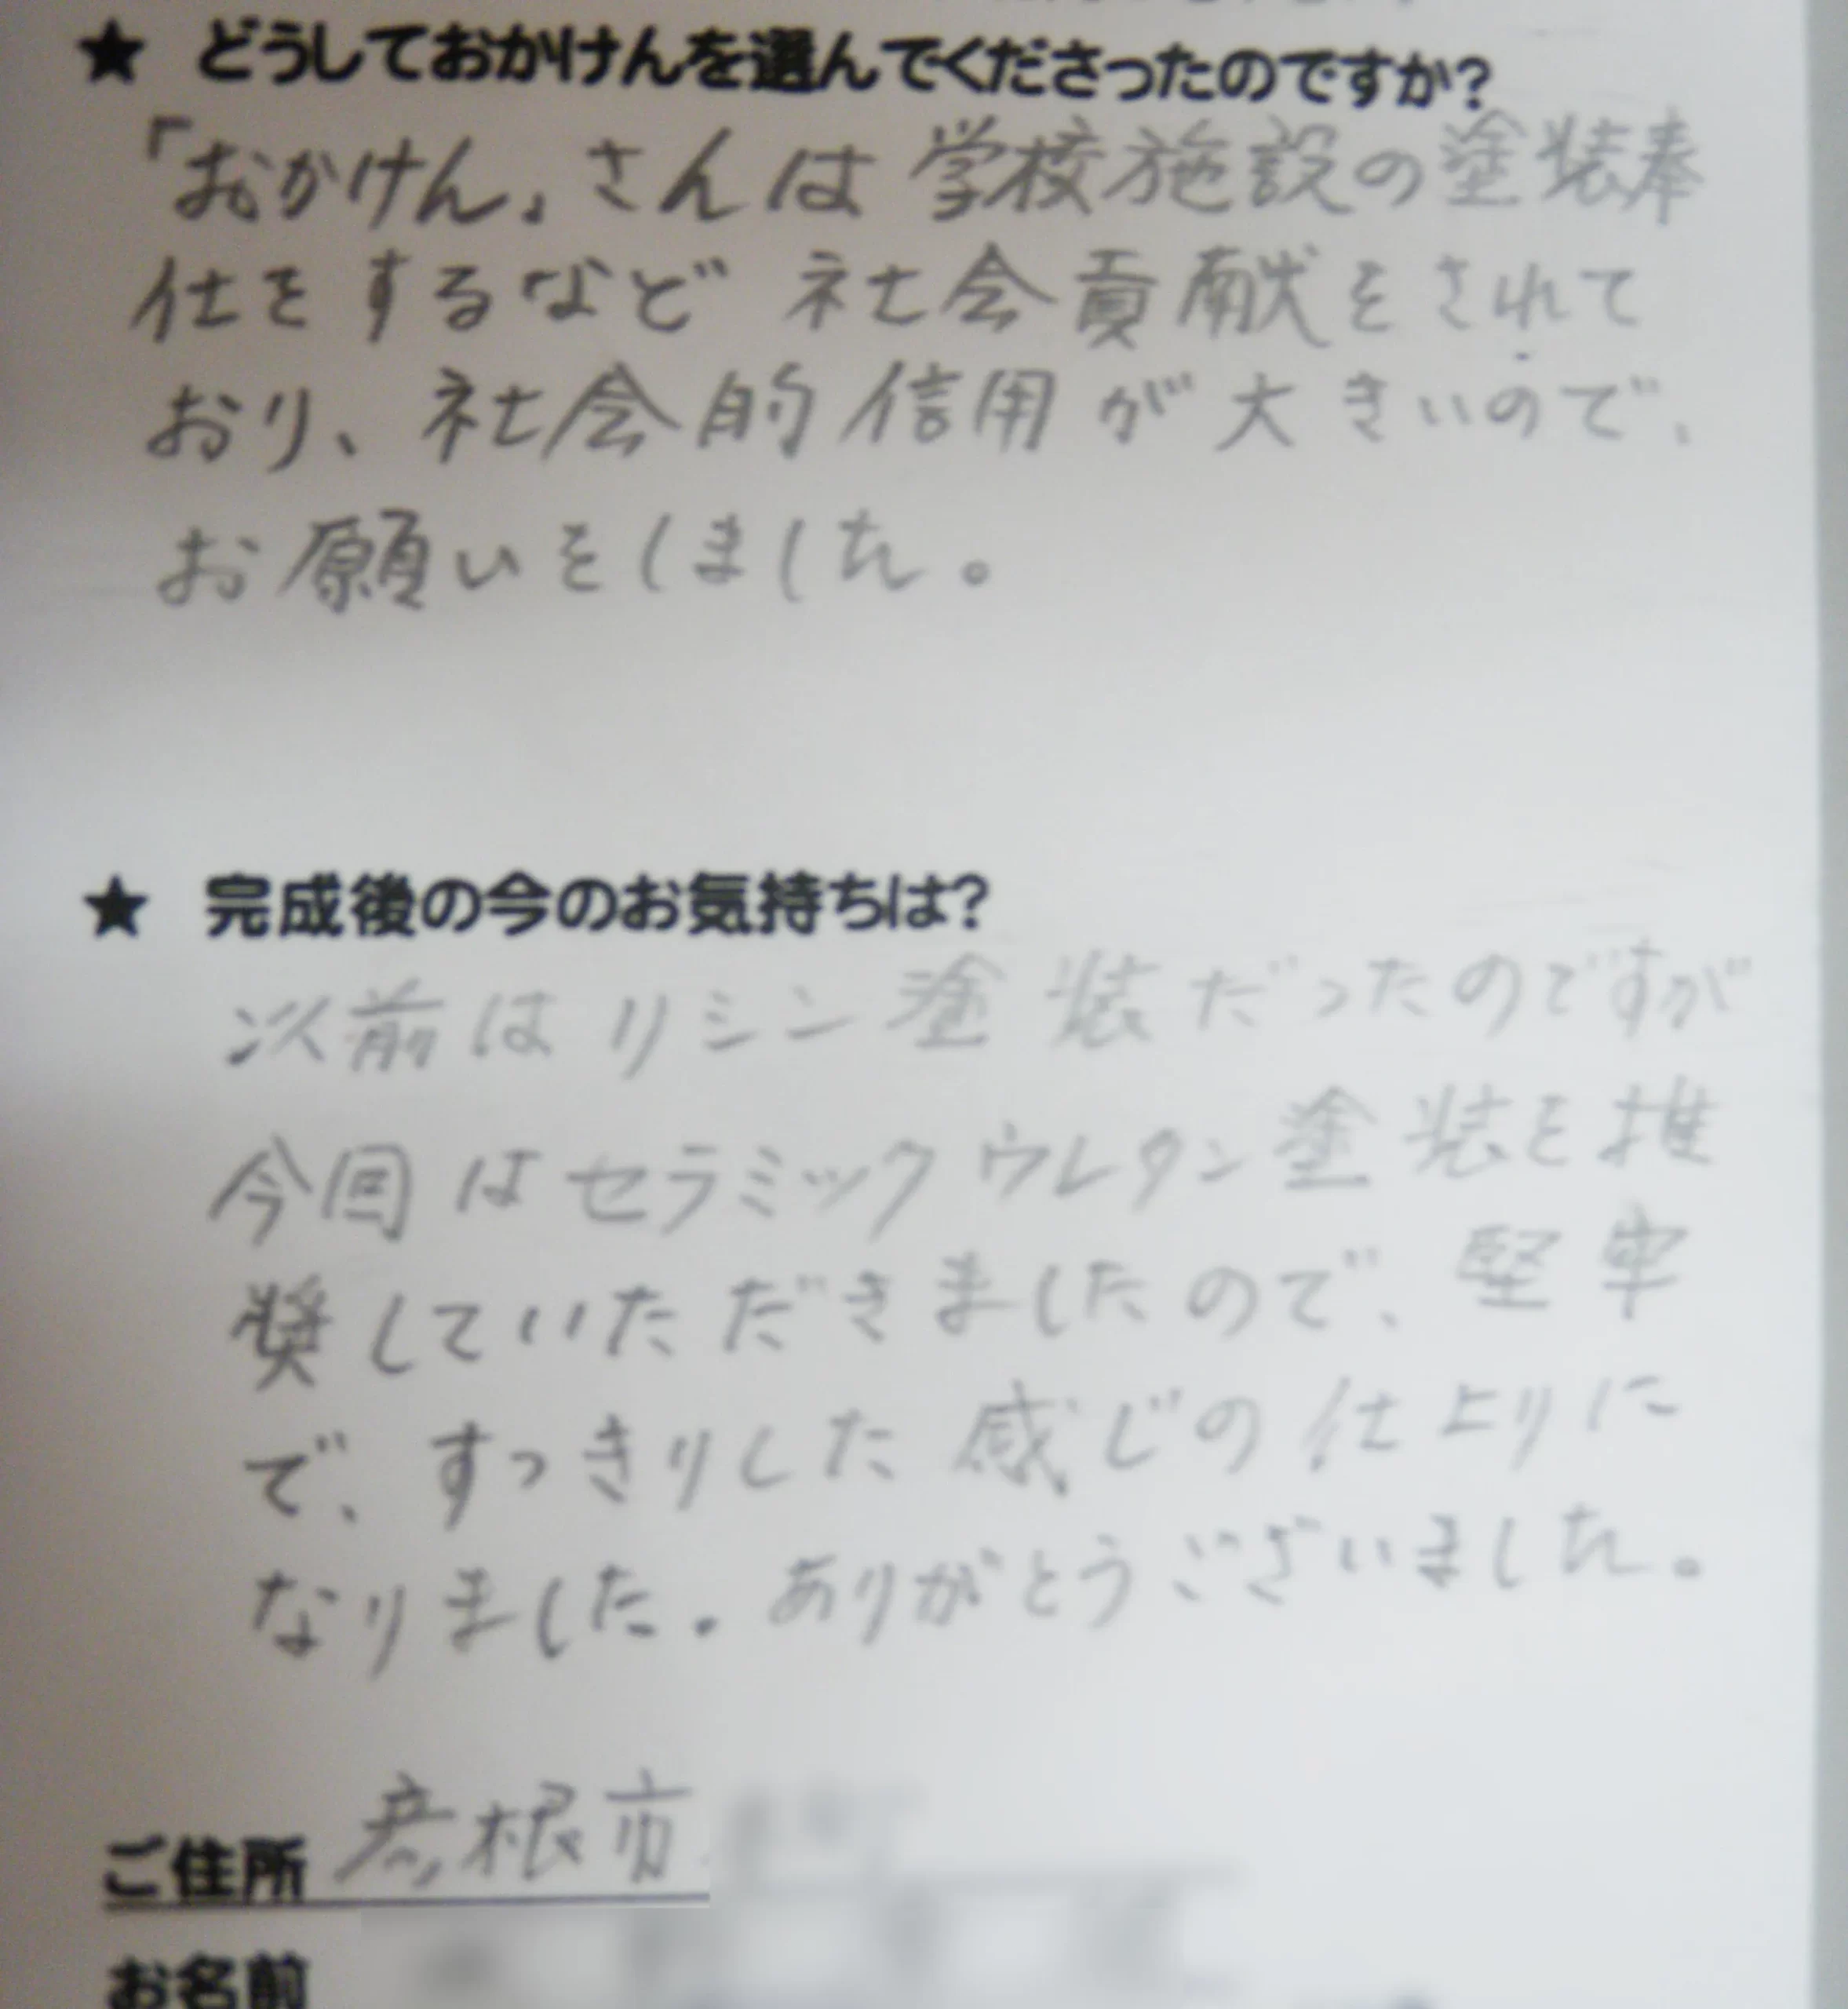 ★ どうしておかけんを選んでくださったのですか?
「おかけん」さんは学校施設の塗装奉
仕をするなど社会貢献をされて
おり、社会的信用が大きいので、
お願いをしました。
★ 完成後の今のお気持ちは?
以前はリシン塗装だったのですが
今回はセラミックウレタン塗装を推
奨していただきましたので、堅牢
で、すっきりした感じの仕上りに
なりました。ありがとうございました。
ご住所 彦根市
お名前